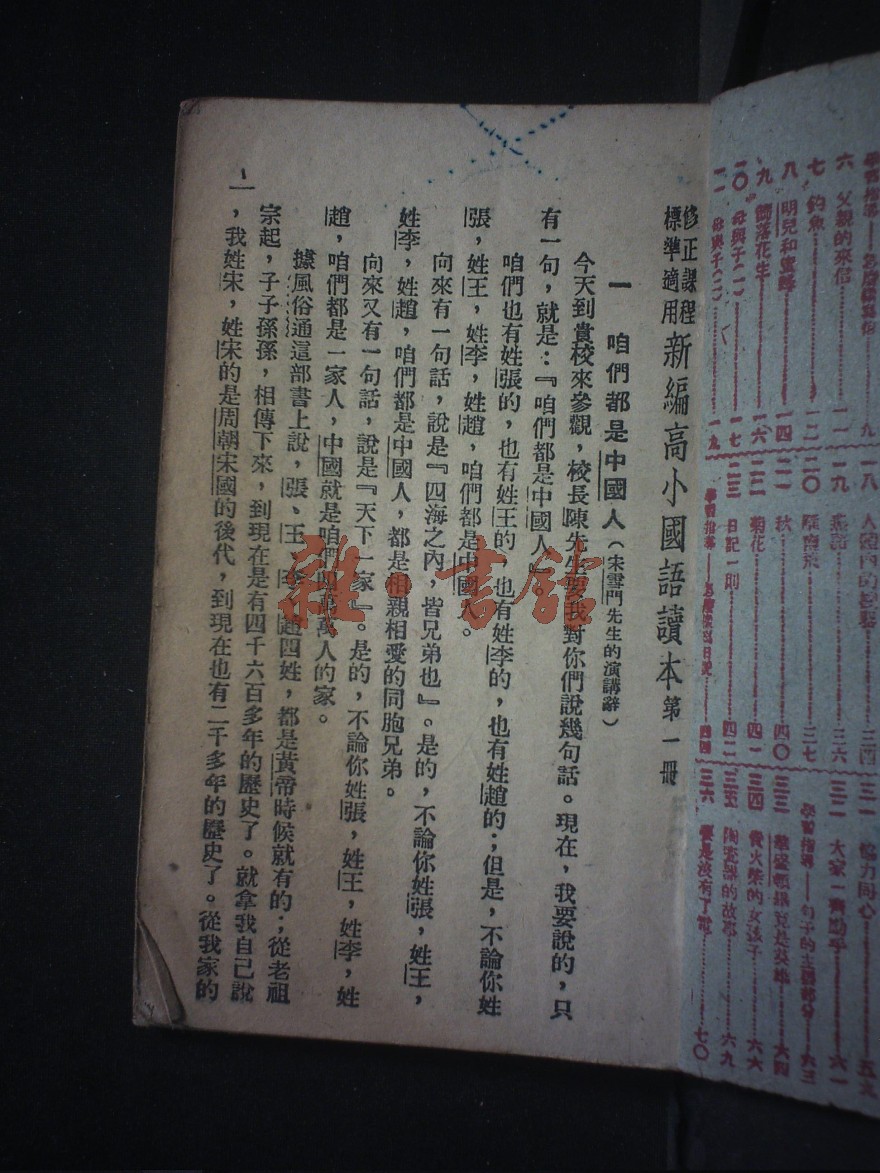 修正課程
標準適用
新編高小國語讀本第一冊
一 咱們都是中國人(宋雪門先生的演講辭)
今天到貴校來參觀,校長陳先生要我對你們說幾句話。現在,我要說的,只
有一句,就是:『咱們都是中國人』。
咱們也有姓張的,也有姓王的,也有姓李的,也有姓趙的;但是,不論你姓
張,姓王,姓李,姓趙,咱們都是中國人。
向來有一句話,說是『四海之內,皆兄弟也』。是的,不論你姓張,姓王,
姓李,姓趙,咱們都是中國人,都是相親相愛的同胞兄弟。
向來又有一句話,說是『天下一家』。是的,不論你姓張,姓王,姓李,姓
趙,咱們都是一家人,中國就是咱們四萬萬人的家。
據風俗通這部書上說,張、王、李、趙四姓,都是黃帝時候就有的;從老祖
宗起,子子孫孫,相傳下來,到現在是有四千六百多年的歷史了。就拿我自己說
,我姓宋,姓宋的是周朝宋國的後代,到現在也有二千多年的歷史了。從我家的
一
雜·書館
九
六 父親的來信 一一
七 釣魚 一二
八 明兒和蜜蜂 一四
九 落花生 一六
一〇 母與子(一) 一七
一一 母與子(二) 一九
一八 三四
一九 三六
二〇 三七
二一 秋 四〇
二二 菊花 四一
二三 日記一則 四二
四四
三一 協力同心 五九
三二 大家一齊動手 六一
學習指導——句子的主要部分 六三
三三 六四
三四 賣火柴的女孩子 六六
三五 陶瓷器的故事 六九
三六 要是沒有了電 七〇